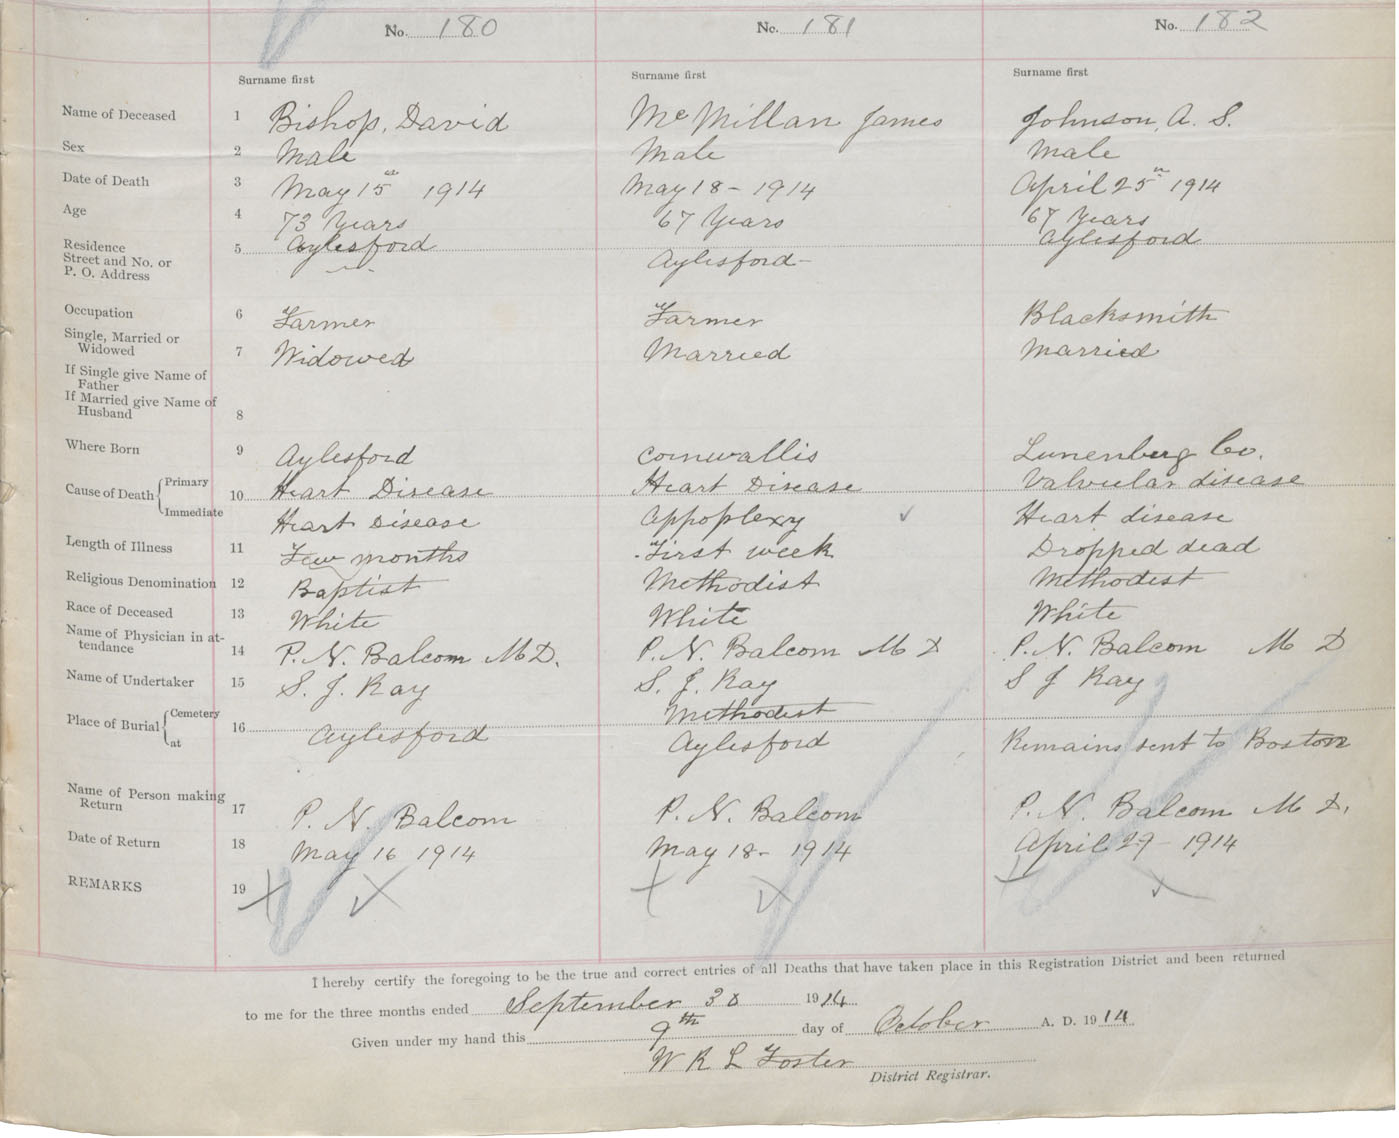 No. 180 No. 181 No. 182
Surname first Surname first Surname first
Name of Deceased 1 Bishop, David McMillan James Johnson, A. S.
Sex 2 Male Male Male
Date of Death 3 May 15th 1914 May 18 - 1914 April 25th 1914
Age 4 73 Years 67 Years 67 Years
Residence 5 Aylesford Aylesford - Aylesford
Street and No. or
P. O. Address
Occupation 6 Farmer Farmer Blacksmith
Single, Married or
Widowed 7 Widowed Married Married
If Single give Name of
Father
If Married give Name of
Husband 8
Where Born 9 Aylesford Cornwallis Lunenberg Co.
Cause of Death { Primary 10 Heart Disease Heart Disease Valvular disease
Immediate Heart Disease Appoplexy ✓ Heart disease
Length of Illness 11 Few months First week Dropped dead
Religious Denomination 12 Baptist Methodist Methodest
Race of Deceased 13 White White White
Name of Physician in at-
tendance 14 P. N. Balcom M D. P. N. Balcom M D P. N. Balcom M D
Name of Undertaker 15 S. J. Ray S. J. Ray S J Ray
Place of Burial { Cemetery 16 Methodist
at Aylesford Aylesford Remains sent to Boston
Name of Person making
Return 17 P. N. Balcom P. N. Balcom P. N. Balcom M D.
Date of Return 18 May 16 1914 May 18 - 1914 April 29 - 1914
REMARKS 19
I hereby certify the foregoing to be the true and correct entries of all Deaths that have taken place in this Registration District and been returned
to me for the three months ended September 30 1914
Given under my hand this 9th day of October A. D. 1914
W R L Foster
District Registrar.